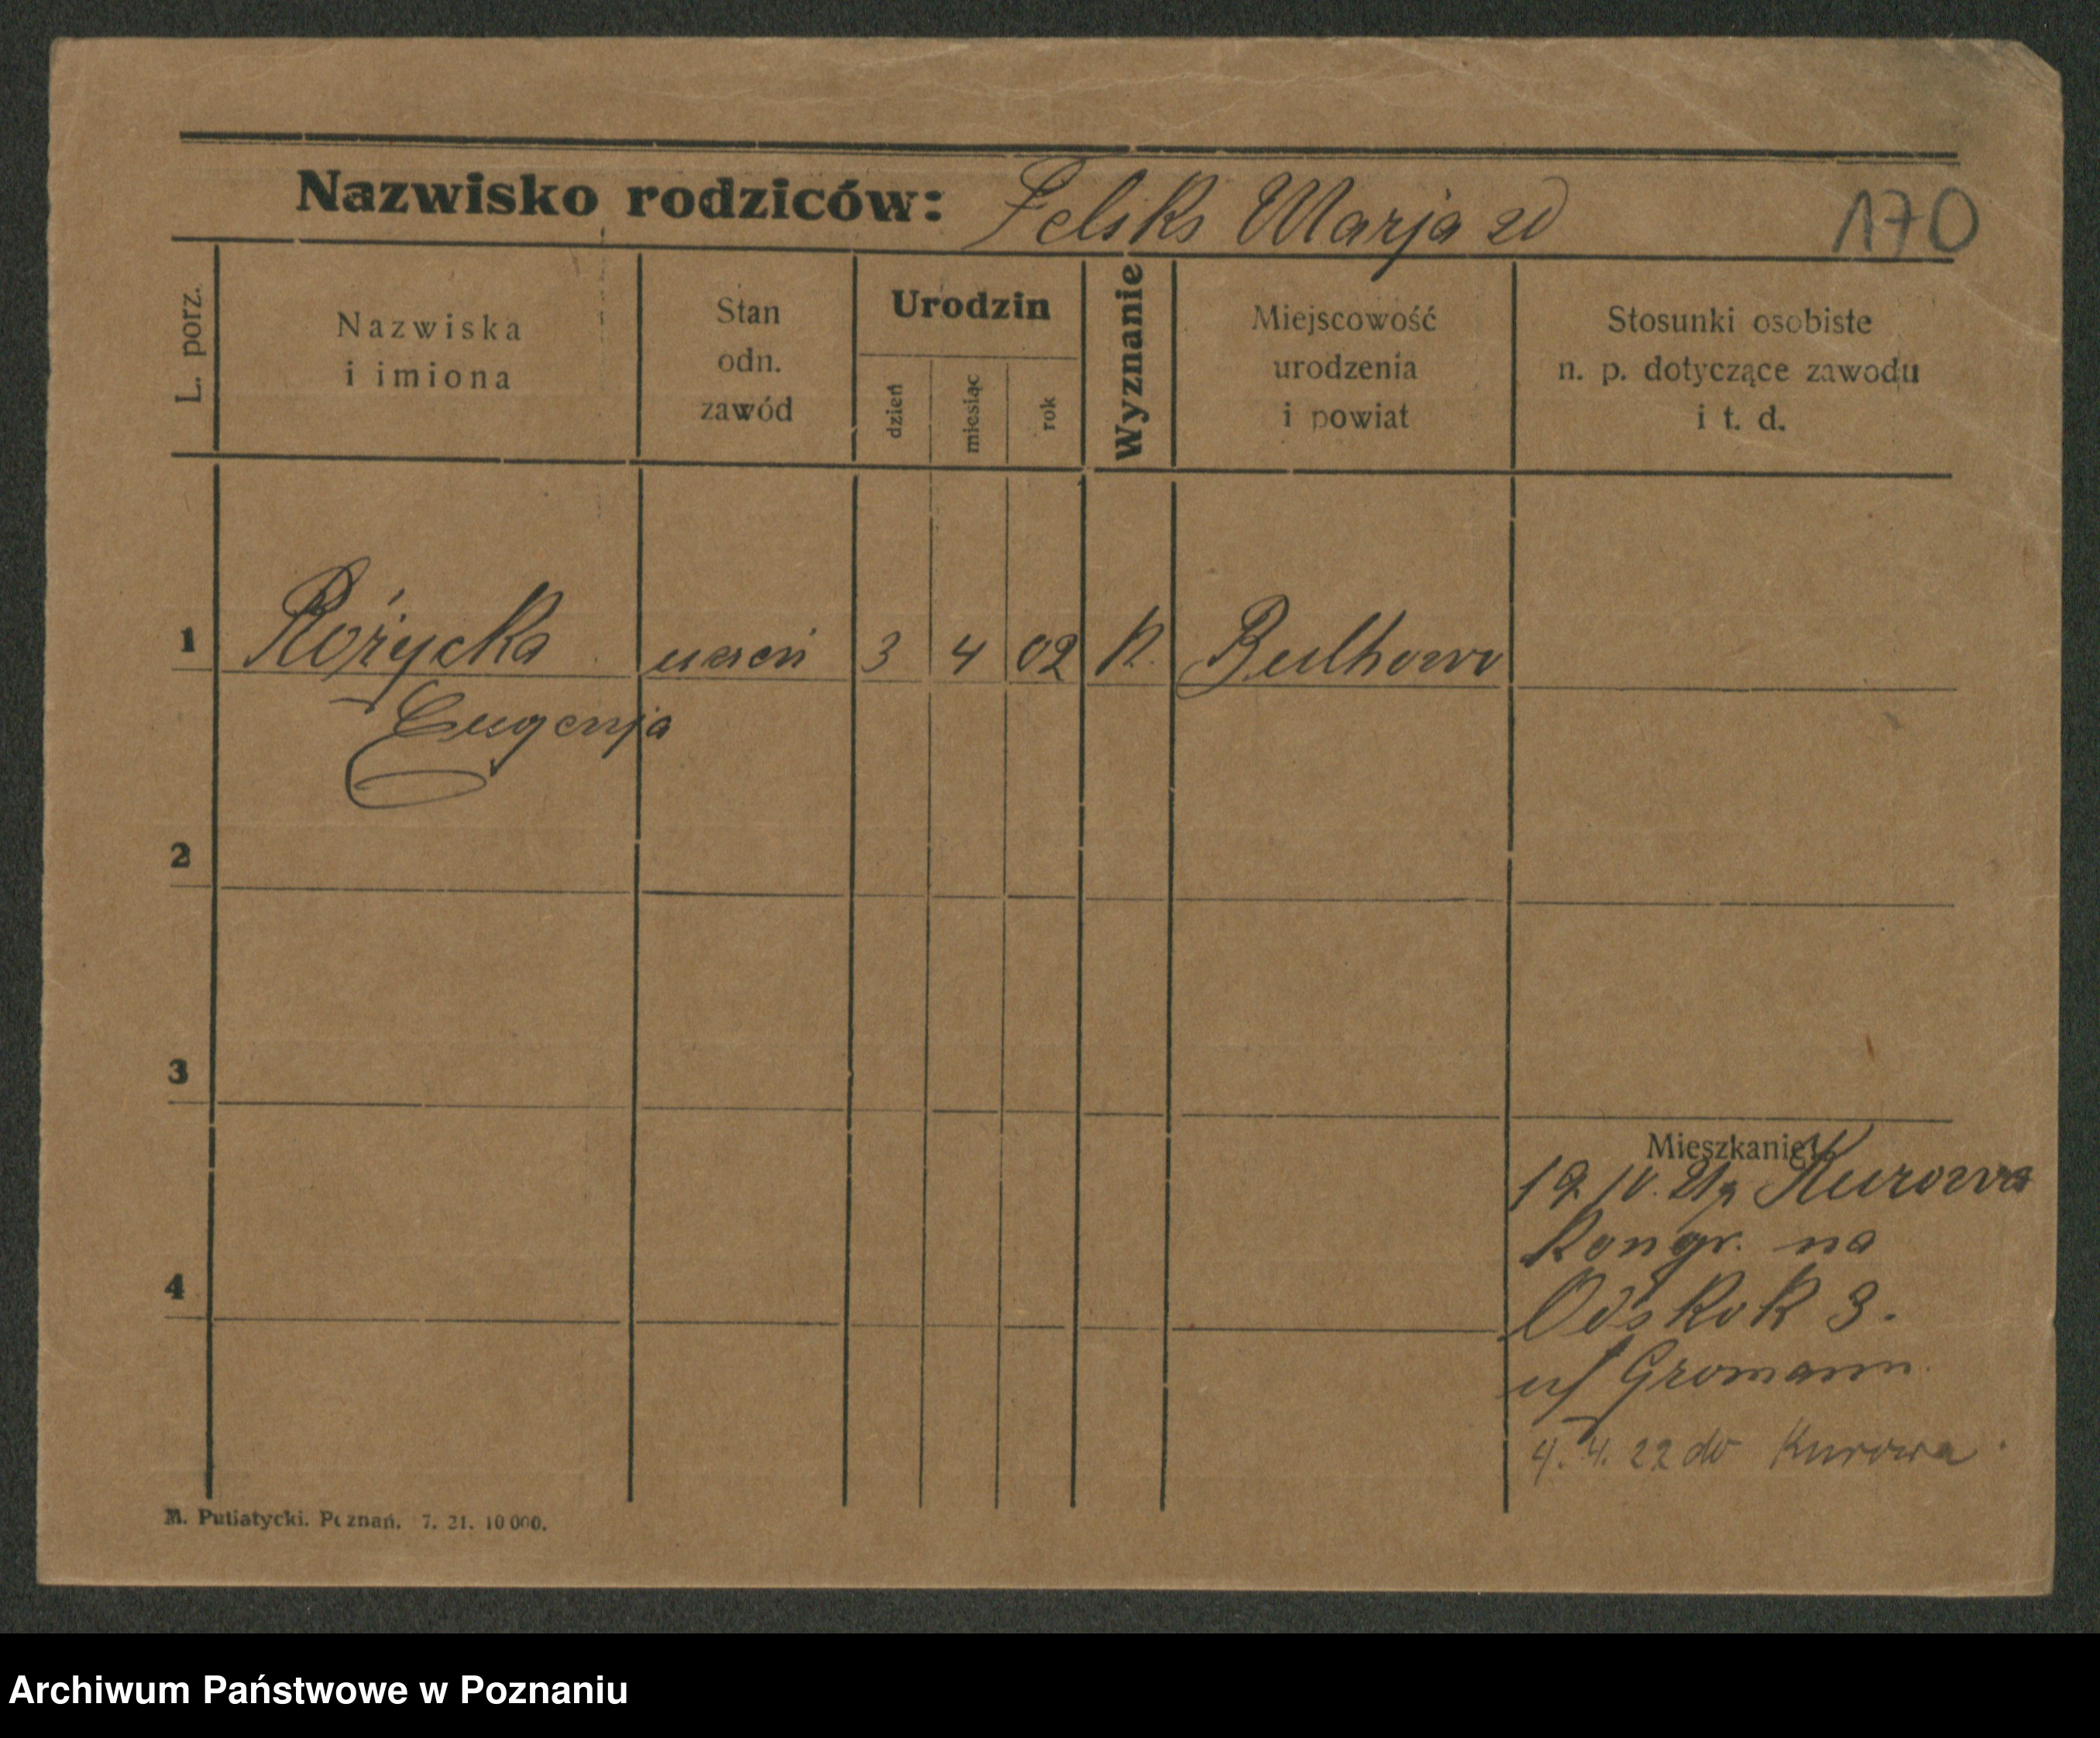 Nazwisko rodziców: Felska Marja zd 170
L. porz.
Nazwiska
i imiona
Stan
odn.
zawód
Urodzin
dzień
miesiąc
rok
Wyznanie
Miejscowość
urodzenia
i powiat
Stosunki osobiste
n. p. dotyczące zawodu
i t. d.
1 Różycka uczeń 3 4 02 k. Bulhowo
Eugenja
2
3
4
Mieszkanie:
19. IV. 21 z Kurowa
Kongr. na
Odskok 3.
u/ Gromann.
4. 4. 22 do Kurowa.
M. Putiatycki. Poznań. 7. 21. 10 000.
Archiwum Państwowe w Poznaniu